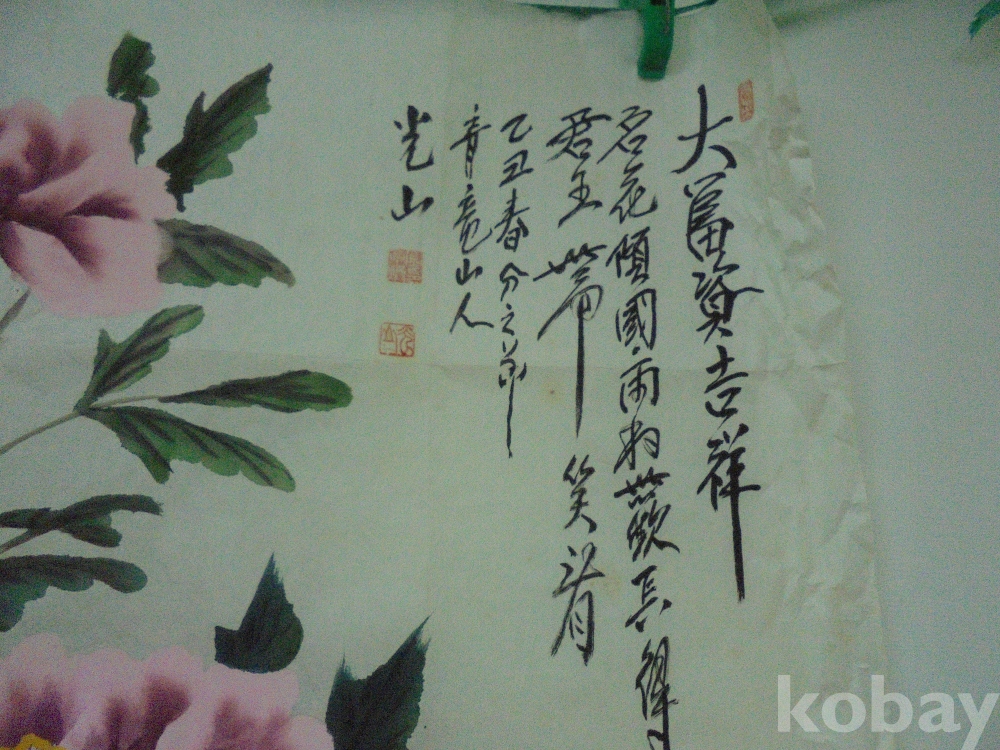 大富貴吉祥
名花傾國兩相歡長得
君王帶笑看
乙丑春分之節
青竜山人
光山
kobay